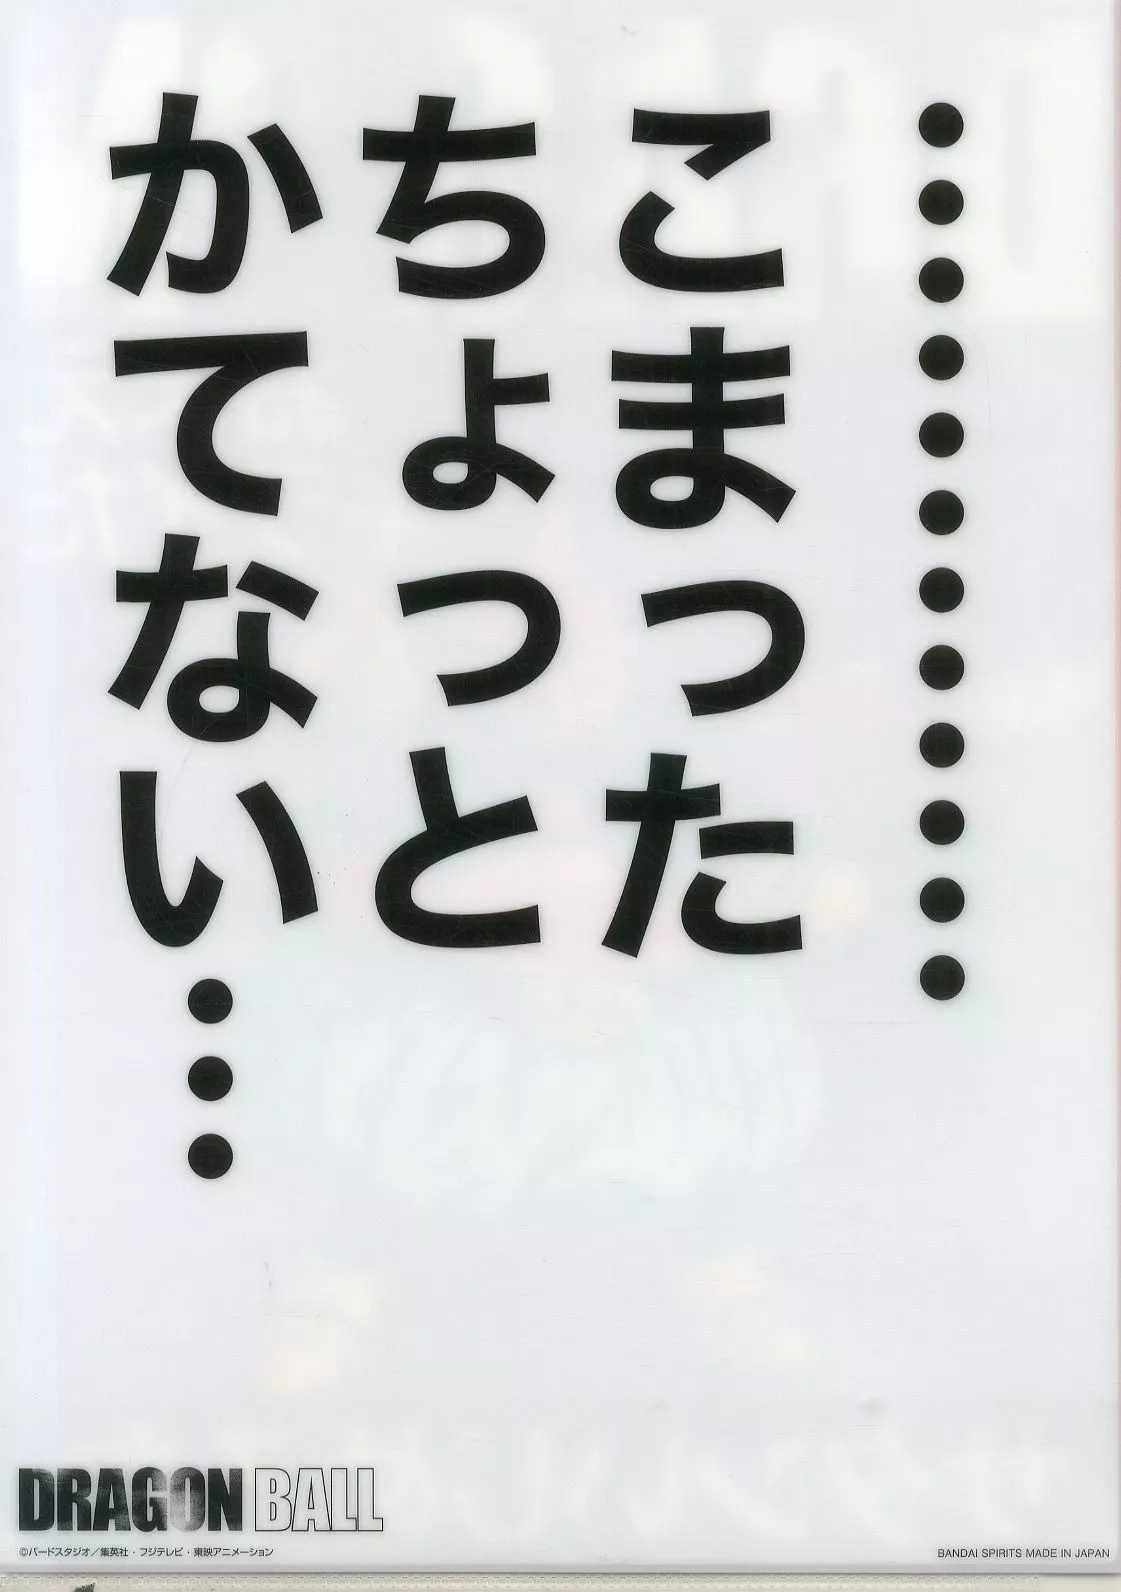 …………
こまった
ちょっと
かてない…
DRAGON BALL
©バードスタジオ／集英社・フジテレビ・東映アニメーション
BANDAI SPIRITS MADE IN JAPAN